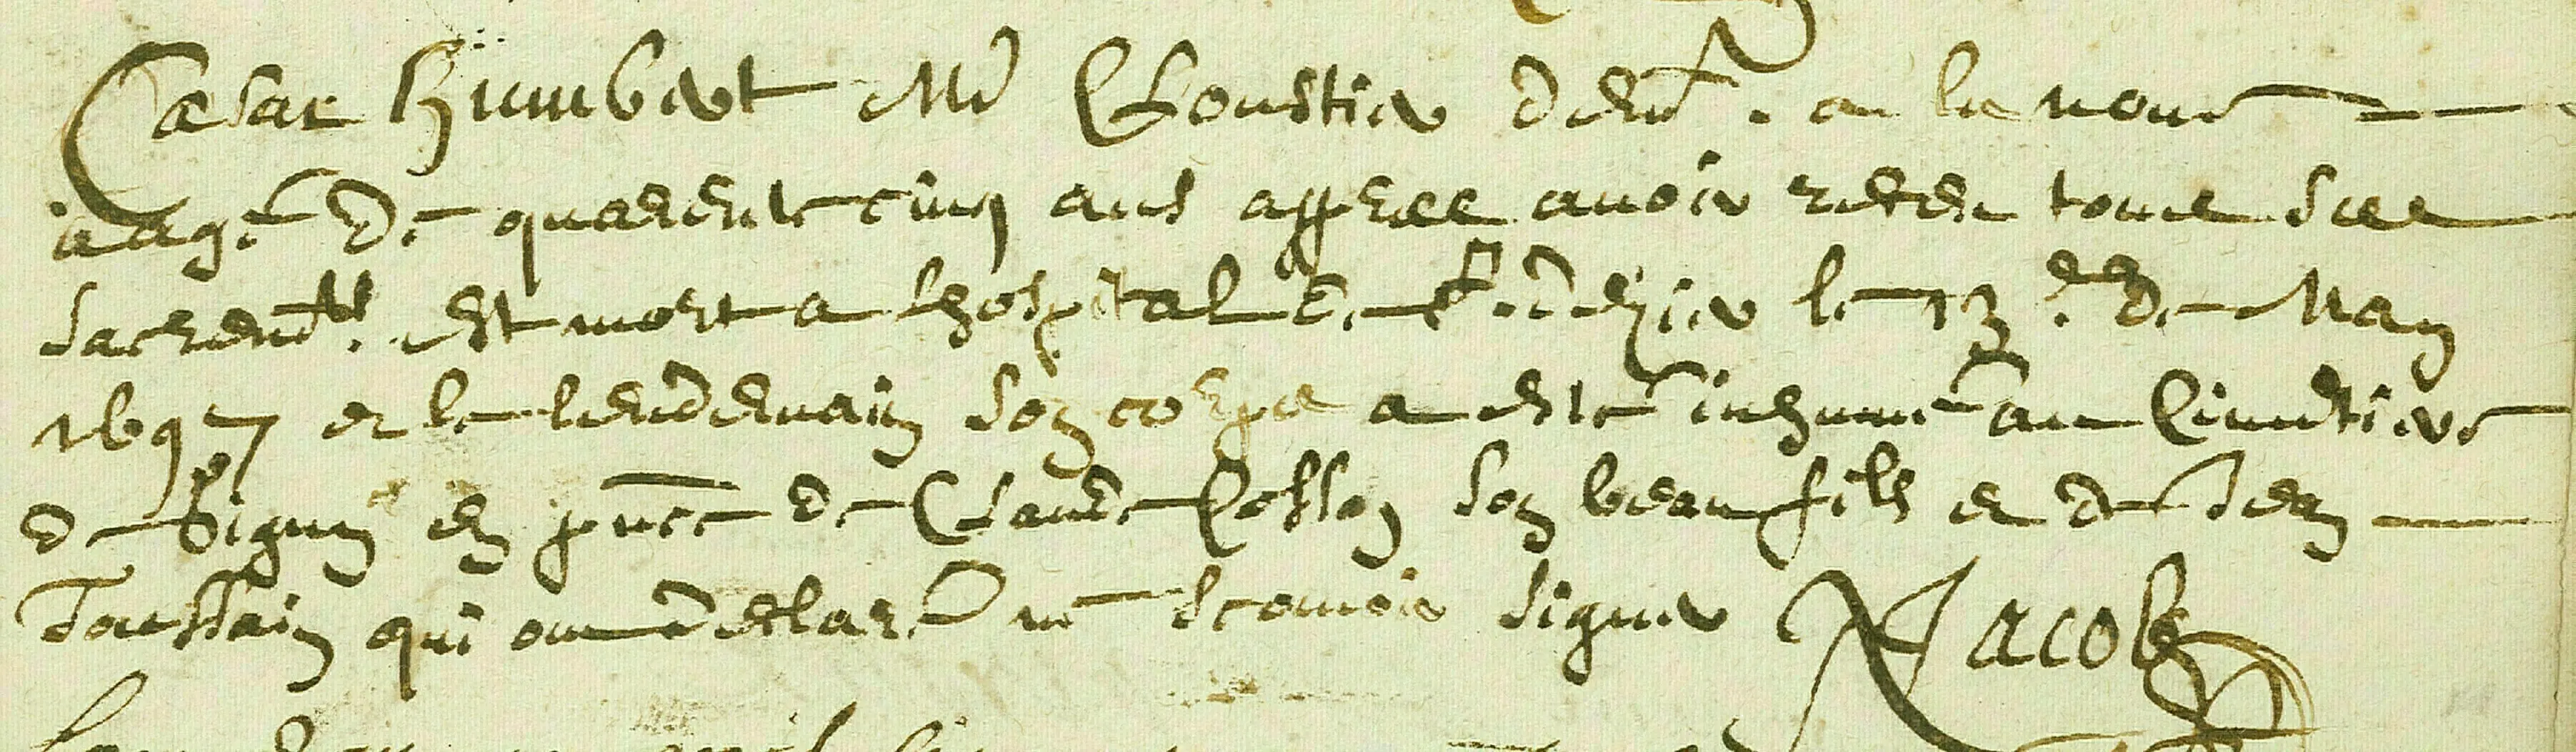 Cesar Humbert Md Cloustier demt. a la neuve
aagé de quarente cinq ans appres avoir receu tous ses
sacremts. est mort a lhospital de st. didier le 13e. de May
1697 et le lendemain son corps a esté inhumé au Cimetiere
de Bigny en pnce de Claude Cosson son beau fils et de Jean
Toussain qui ont declaré ne scavoir signer NJacob